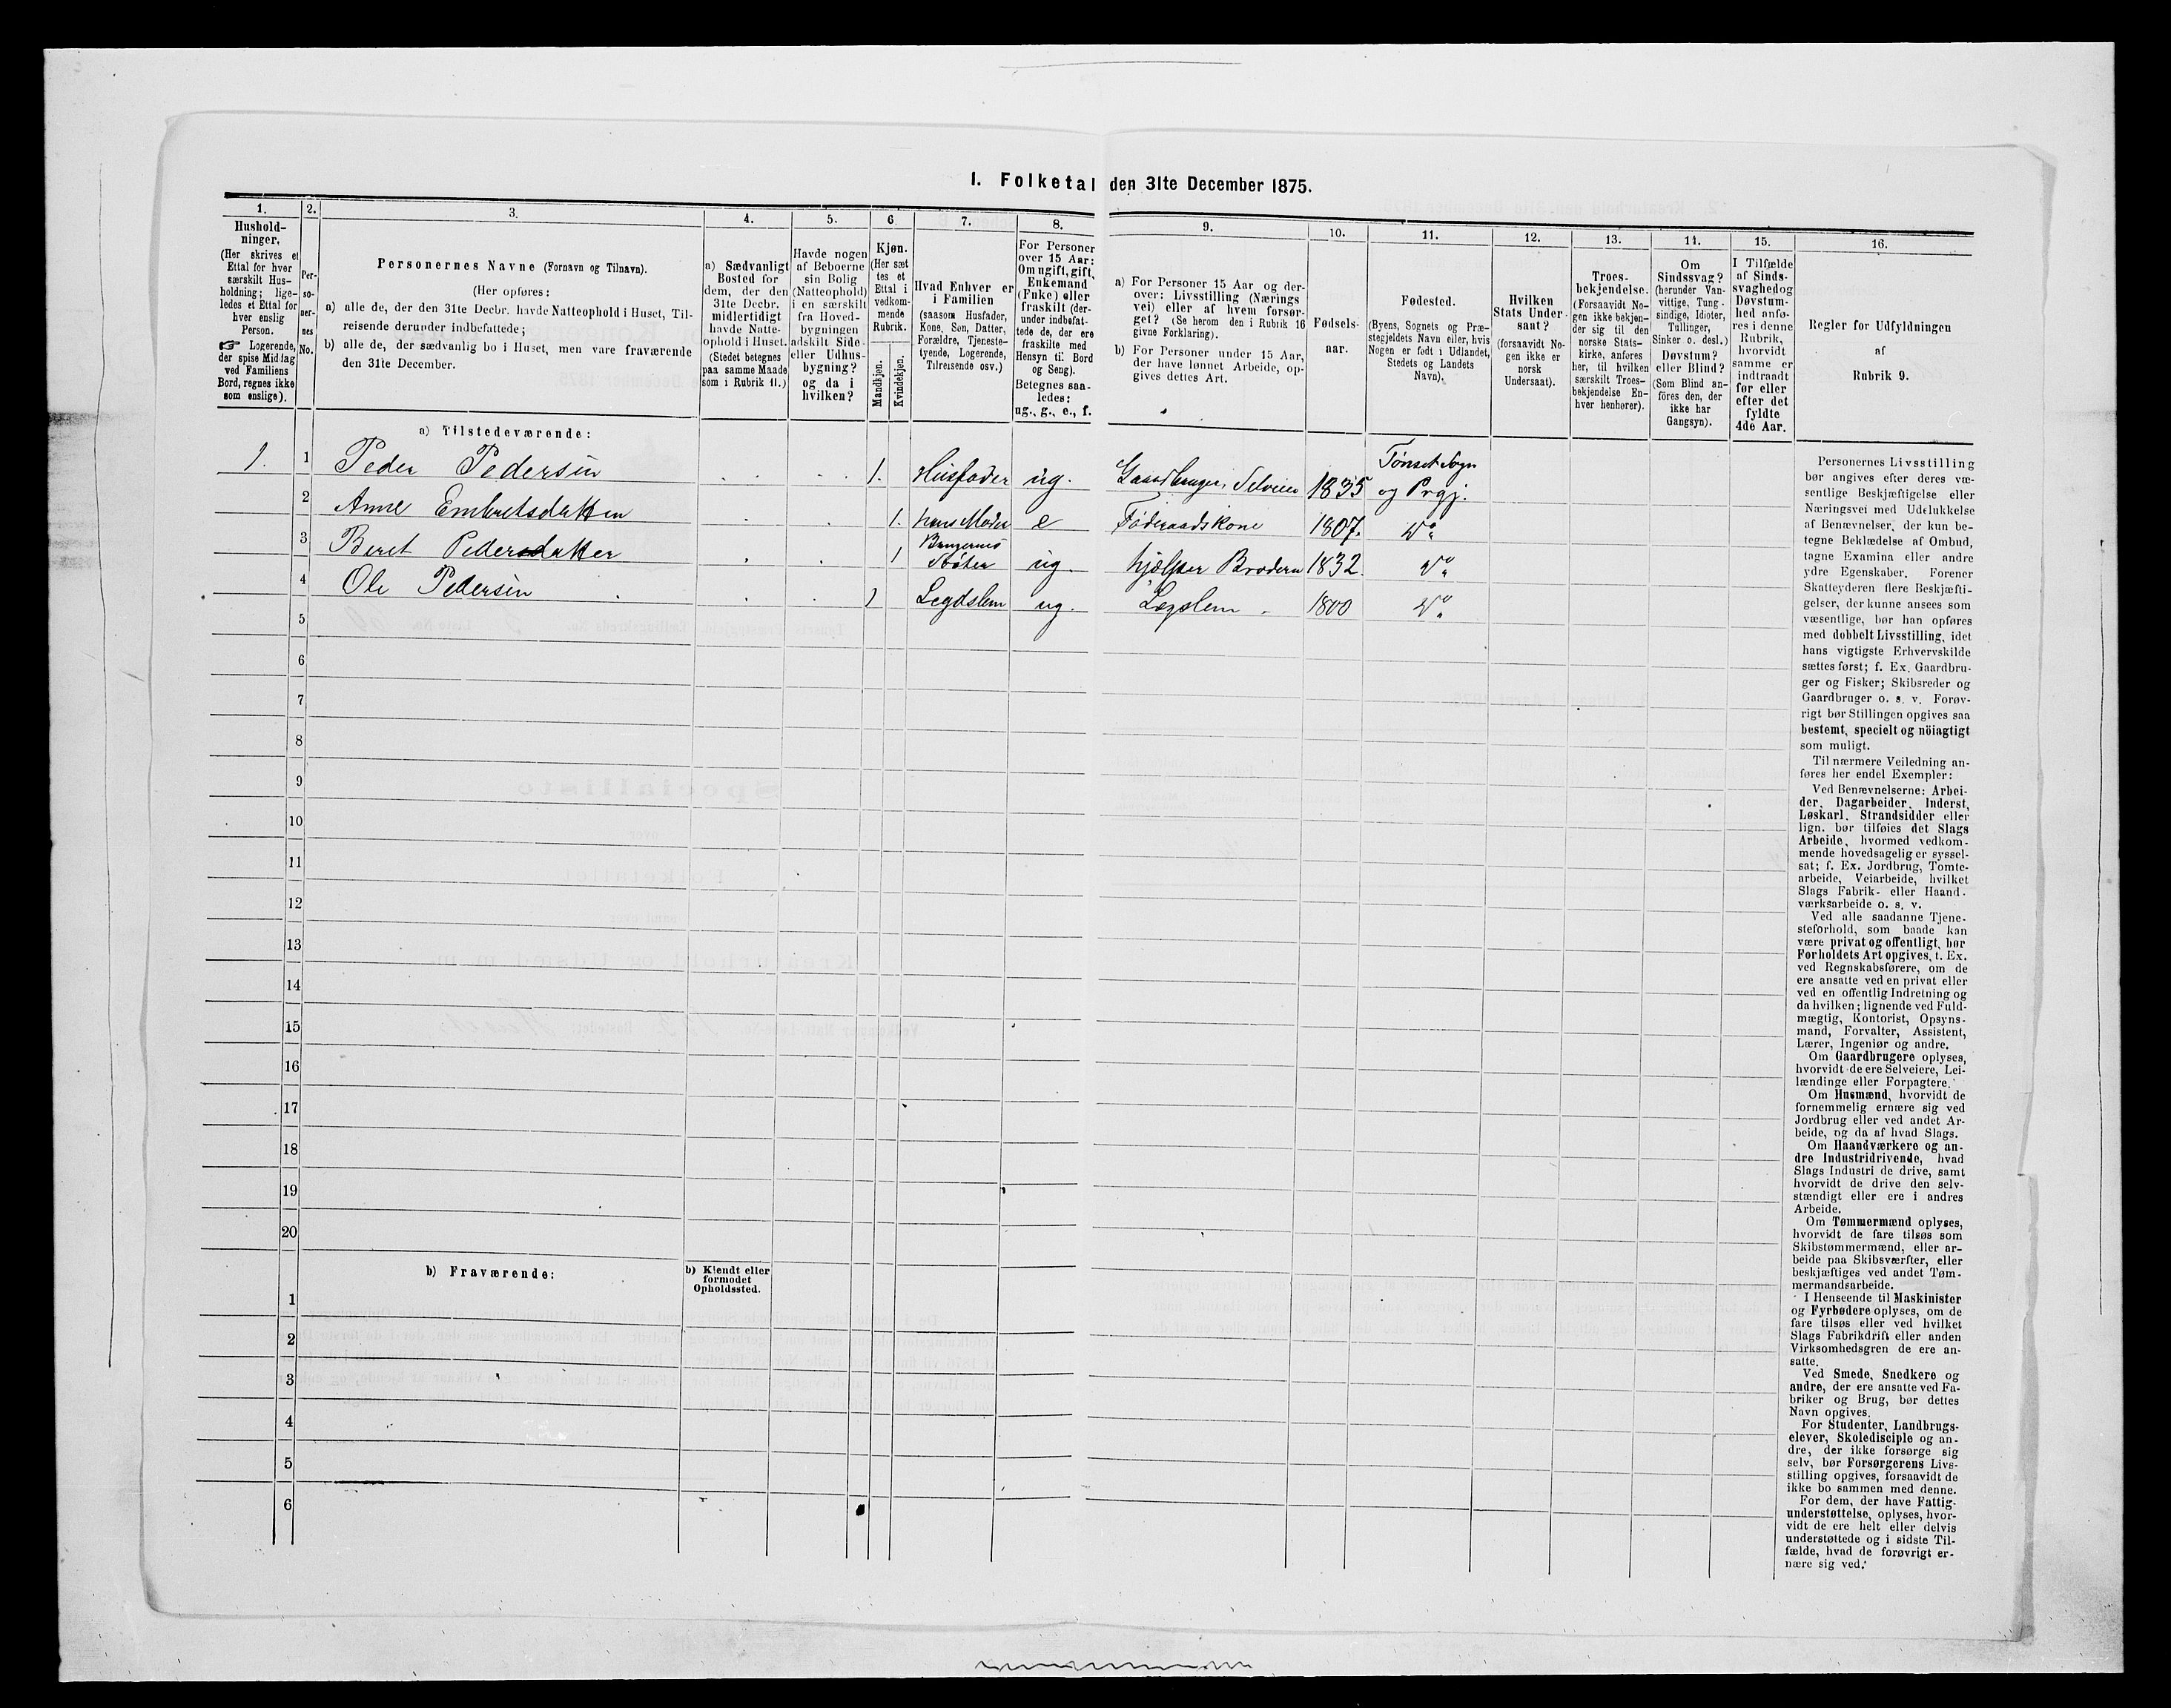 I. Folketal den 31te December 1875.
1.
Hushold-
ninger,
(Her skrives et
Ettal for hver
særskilt Hus-
holdning; lige-
ledes et Ettal for
hver enslig
Person.
☞ Logerende,
der spise Middag
ved Familiens
Bord, regnes ikke
som enslige).
2.
Per-
so-
ner-
nes
No.
3.
Personernes Navne (Fornavn og Tilnavn).
(Her opføres:
a) alle de, der den 31te Decbr. havde Natteophold i Huset, Til-
reisende derunder indbefattede;
b) alle de, der sædvanlig bo i Huset, men vare fraværende
den 31te December.
4.
a) Sædvanligt
Bosted for
dem, der den
31te Decbr.
midlertidigt
havde Natte-
ophold i Huset.
(Stedet betegnes
paa samme Maade
som i Rubrik 11.)
5.
Havde nogen
af Beboerne
sin Bolig
(Natteophold)
i en særskilt
fra Hoved-
bygningen
adskilt Side-
eller Udhus-
bygning?
og da i
hvilken?
6.
Kjøn.
(Her sæt
tes et
Ettal i
vedkom-
mende
Rubrik.
Mandkjøn.
Kvindekjøn.
7.
Hvad Enhver er
i Familien
(saasom Husfader,
Kone, Søn, Datter,
Forældre, Tjeneste-
tyende, Logerende,
Tilreisende osv.)
8.
For Personer
over 15 Aar:
Om ugift, gift,
Enkemand
(Enke) eller
fraskilt (der-
under indbefat-
tede de, der ere
fraskilte med
Hensyn til Bord
og Seng).
Betegnes saa-
ledes:
ug., g., e., f.
9.
a) For Personer 15 Aar og der-
over: Livsstilling (Nærings
vei) eller af hvem forsør-
get? (Se herom den i Rubrik 16
givne Forklaring).
b) For Personer under 15 Aar,
der have lønnet Arbeide, op-
gives dettes Art.
10.
Fødsels-
aar.
11.
Fødested.
(Byens, Sognets og Præ-
stegjeldets Navn eller, hvis
Nogen er født i Udlandet,
Stedets og Landets
Navn).
12.
Hvilken
Stats Under-
saat?
(forsaavidt No-
gen ikke er
norsk
Undersaat).
13.
Troes-
bekjendelse.
(Forsaavidt No-
gen ikke bekjen-
der sig til den
norske Stats-
kirke, anføres
her, til hvilken
særskilt Troes-
bekjendelse En-
hver henhører).
14.
Om
Sindssvag?
(herunder Van-
vittige, Tung-
sindige, Idioter,
Tullinger,
Sinker o. desl.)
Døvstum?
eller Blind?
(Som Blind an-
føres den, der
ikke har
Gangsyn).
15.
I Tilfælde
af Sinds-
svaghed og
Døvstum-
hed anfø-
res i denne
Rubrik,
hvorvidt
samme er
indtraadt
før eller
efter det
fyldte
4de Aar.
16.
Regler for Udfyldningen
af
Rubrik 9.
a) Tilstedeværende:
1. 1 Peder Pedersen 1. Husfader ug. Gaardbruger, Selveier 1835 Tønset Sogn og Prgj.
2 Anne Embretsdatter 1. hans Moder e Føderaadskone 1807. Do
3 Beret Pedersdatter 1 Brugerens Søster ug. hjælper Broderen 1832. Do
4 Ole Pedersen 1 Legdslem ug. Lægslem 1800 Do
5
6
7
8
9
10
11
12
13
14
15
16
17
18
19
20
b) Fraværende:
b) Kjendt eller
formodet
Opholdssted.
1
2
3
4
5
6
Personernes Livsstilling
bør angives efter deres væ-
sentlige Beskjæftigelse eller
Næringsvei med Udelukkelse
af Benævnelser, der kun be-
tegne Beklædelse af Ombud,
tagne Examina eller andre
ydre Egenskaber. Forener
Skatteyderen flere Beskjæfti-
gelser, der kunne ansees som
væsentlige, bør han opføres
med dobbelt Livsstilling, idet
hans vigtigste Erhvervskilde
sættes først; f. Ex. Gaardbru-
ger og Fisker; Skibsreder og
Gaardbruger o. s. v. Forøv-
rigt bør Stillingen opgives saa
bestemt, specielt og nöiagtigt
som muligt.
Til nærmere Veiledning an-
føres her endel Exempler:
Ved Benævnelserne: Arbei-
der, Dagarbeider, Inderst,
Løskarl, Strandsidder eller
lign. bør tilføies det Slags
Arbeide, hvormed vedkom-
mende hovedsagelig er syssel-
sat; f. Ex. Jordbrug, Tomte-
arbeide, Veiarbeide, hvilket
Slags Fabrik- eller Haand-
værksarbeide o. s. v.
Ved alle saadanne Tjene-
steforhold, som baade kan
være privat og offentligt, bør
Forholdets Art opgives, f. Ex.
ved Regnskabsførere, om de
ere ansatte ved en privat eller
ved en offentlig Indretning og
da hvilken; lignende ved Fuld-
mægtig, Kontorist, Opsyns-
mand, Forvalter, Assistent,
Lærer, Ingeniør og andre.
Om Gaardbrugere oplyses,
hvorvidt de ere Selveiere, Lei-
lændinge eller Forpagtere.
Om Husmænd, hvorvidt de
fornemmelig ernære sig ved
Jordbrug eller ved andet Ar-
beide, og da af hvad Slags.
Om Haandværkere og an-
dre Industridrivende, hvad
Slags Industri de drive, samt
hvorvidt de drive den selv-
stændigt eller ere i andres
Arbeide.
Om Tømmermænd oplyses,
hvorvidt de fare tilsøs som
Skibstømmermænd, eller ar-
beide paa Skibsværfter, eller
beskjæftiges ved andet Tøm-
mermandsarbeide.
I Henseende til Maskinister
og Fyrbødere oplyses, om de
fare tilsøs eller ved hvilket
Slags Fabrikdrift eller anden
Virksomhedsgren de ere an-
satte.
Ved Smede, Snedkere og
andre, der ere ansatte ved Fa-
briker og Brug, bør dettes
Navn opgives.
For Studenter, Landbrugs-
elever, Skoledisciple og an-
dre, der ikke forsørge sig
selv, bør Forsørgerens Livs-
stilling opgives, forsaavidt de
ikke bo sammen med denne.
For dem, der have Fattig-
understøttelse, oplyses, hvor-
vidt de ere helt eller delvis
understøttede og i sidste Til-
fælde, hvad de forøvrigt er-
nære sig ved.